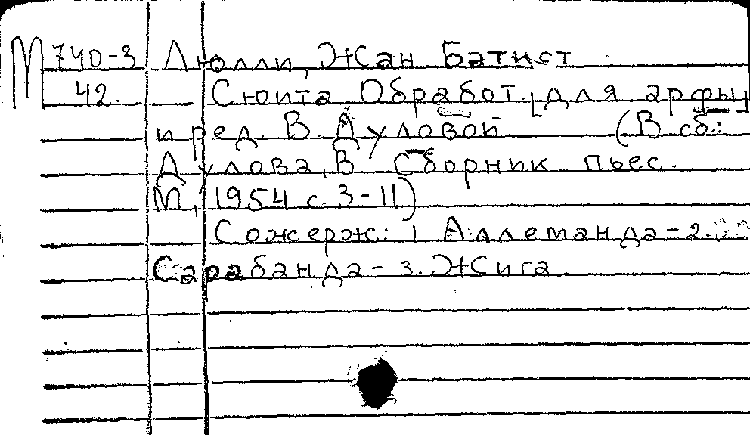 М 740-3 Люлли, Жан Батист
42. Сюита. Обработ. [для арфы]
и ред. В. Дуловой (В сб.:
Дулова, В. Сборник пьес.
М., 1954 с. 3-11)
Сожерж: 1 Аллеманда - 2.
Сарабанда - 3. Жига